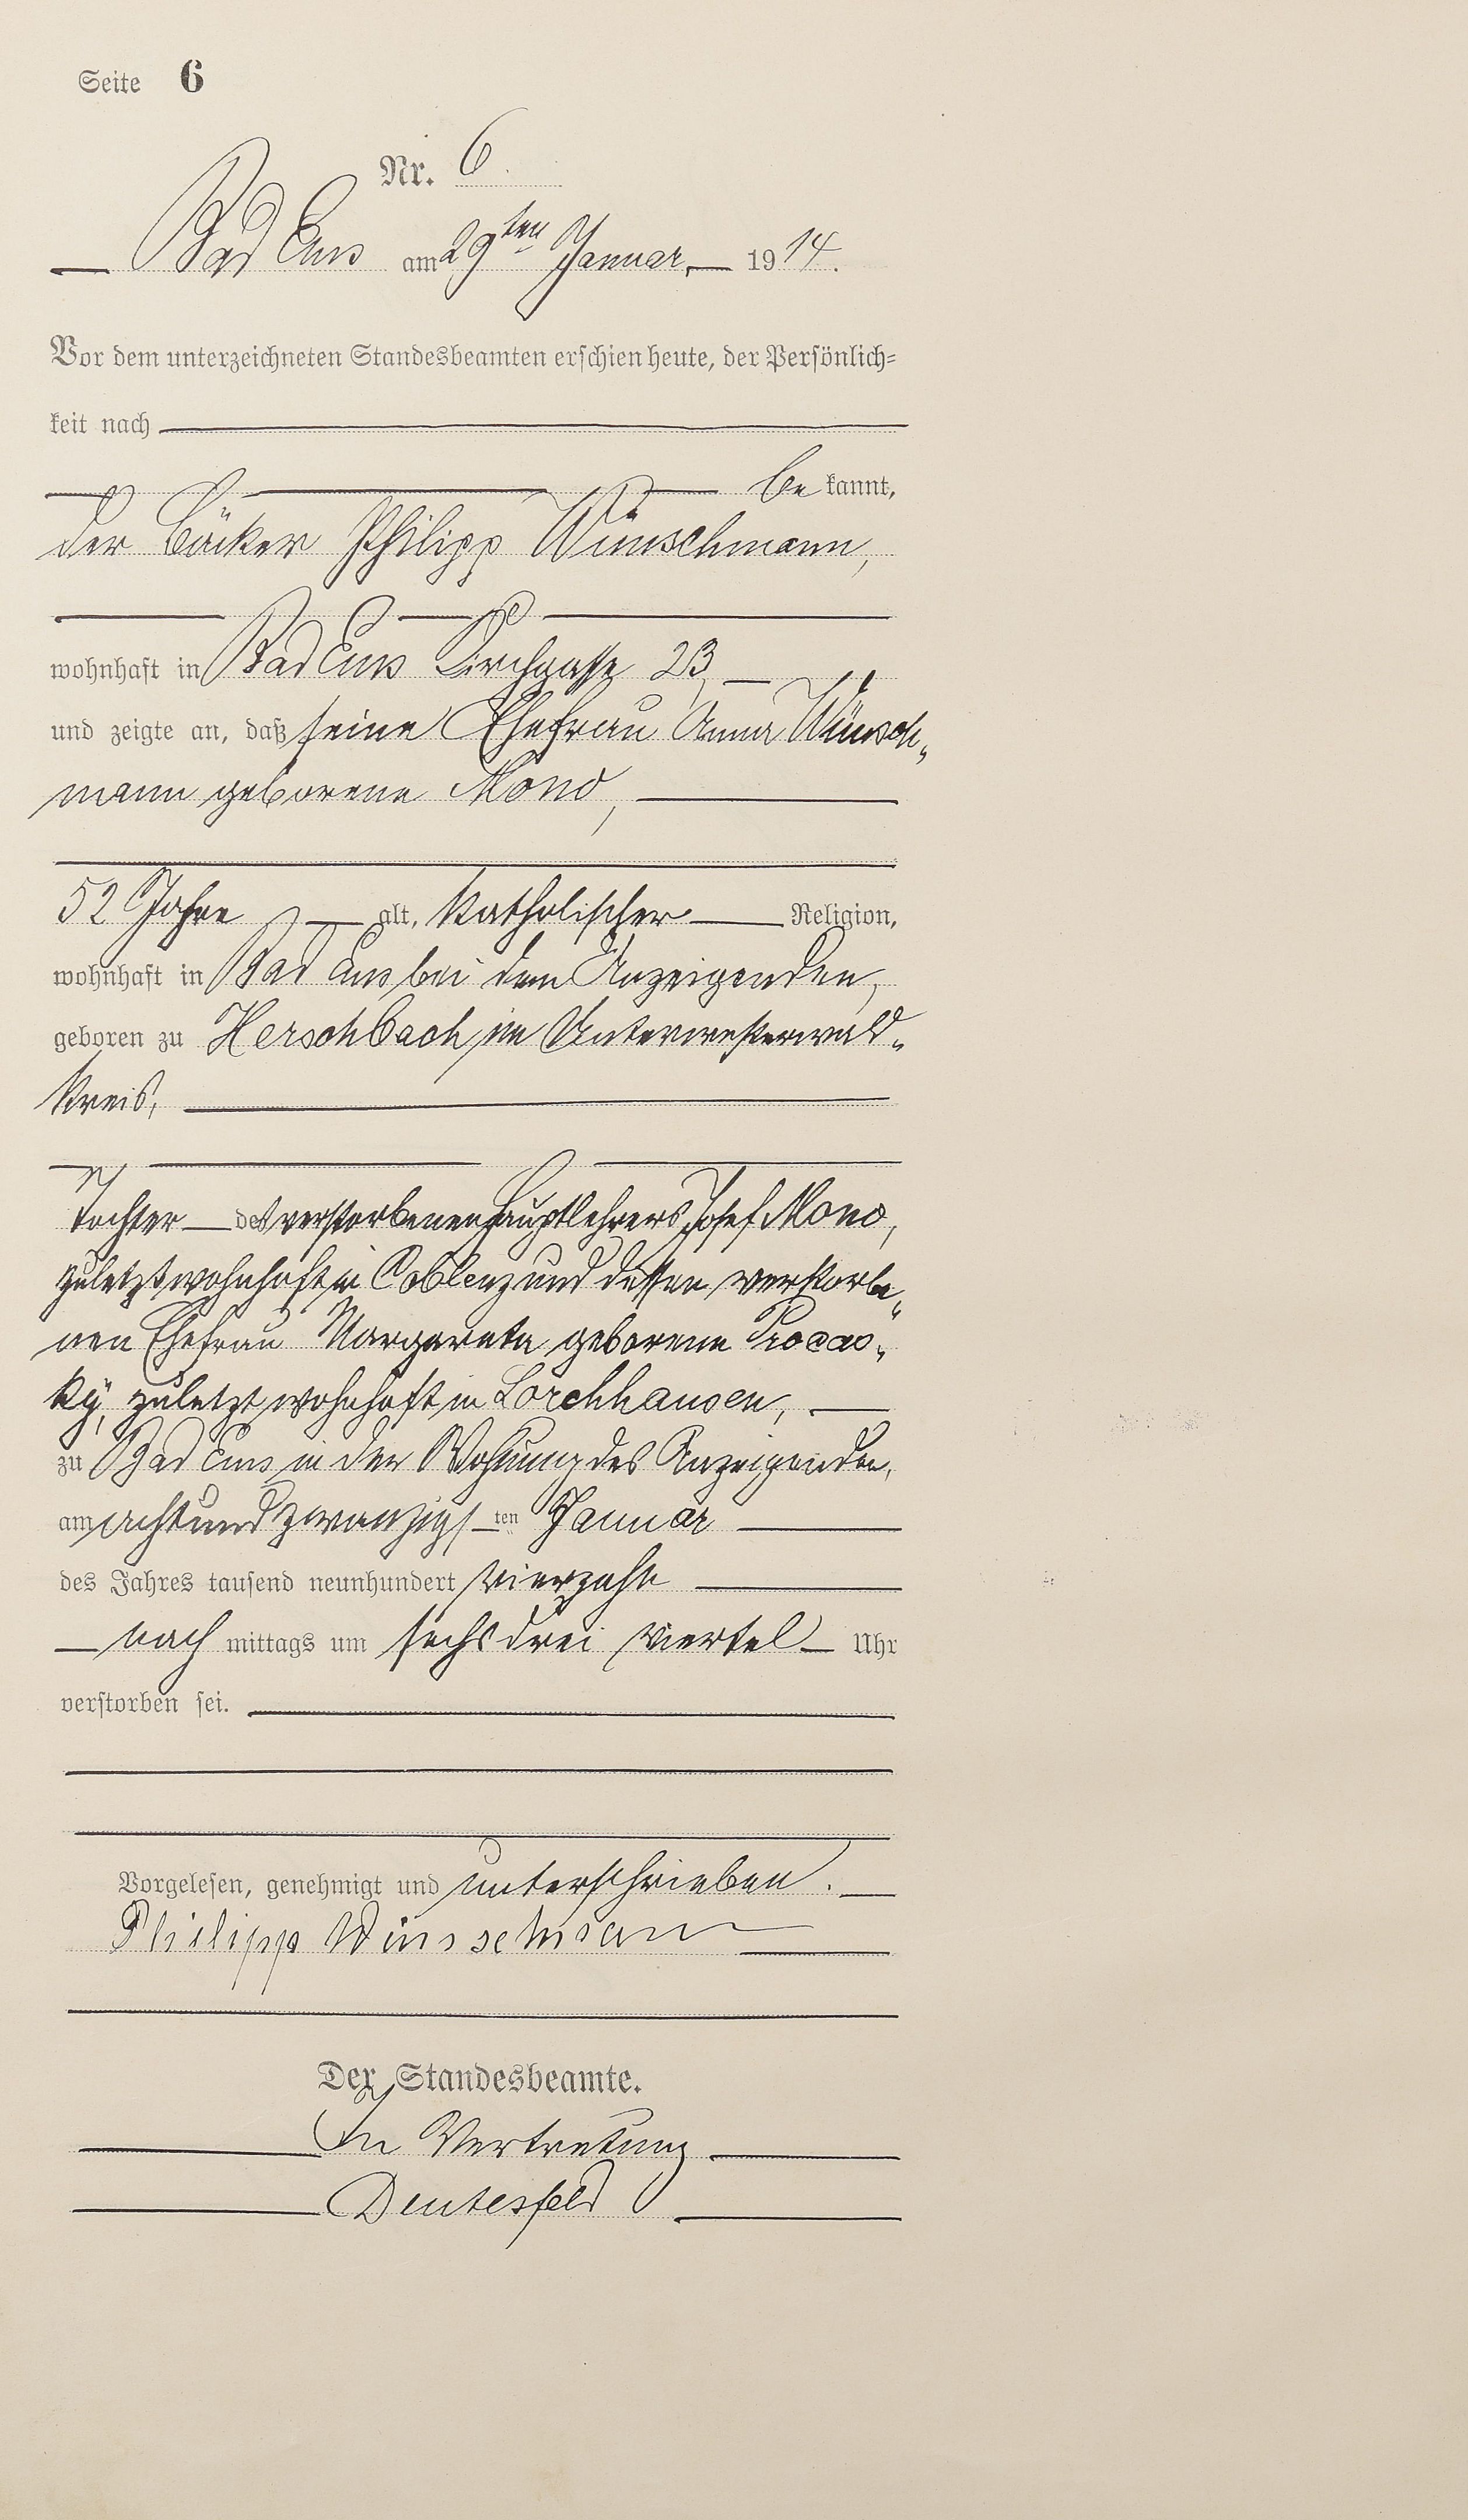 Seite 6
Nr. 6.
Bad Ems am 29ten Januar 1914.
Vor dem unterzeichneten Standesbeamten erschien heute, der Persönlich-
keit nach
be kannt,
der Bäcker Philipp Wünschmann,
wohnhaft in Bad Ems Kirchgasse 23,
und zeigte an, daß seine Ehefrau Anna Wünsch-
mann geborene Mono,
52 Jahre alt, katholischer Religion,
wohnhaft in Bad Ems bei dem Anzeigenden,
geboren zu Herschbach im Unterwesterwald-
kreis,
Tochter des verstorbenen Hauptlehrers Josef Mono,
zuletzt wohnhaft in Coblenz und dessen verstorbe-
nen Ehefrau Margareta geborene Procas-
ky, zuletzt wohnhaft in Lorchhausen,
zu Bad Ems in der Wohnung des Anzeigenden,
am achtundzwanzigsten Januar
des Jahres tausend neunhundert vierzehn
nach mittags um sechs drei viertel Uhr
verstorben sei.
Vorgelesen, genehmigt und unterschrieben.
Philipp Wünsschmann
Der Standesbeamte.
In Vertretung
Deutesfeld